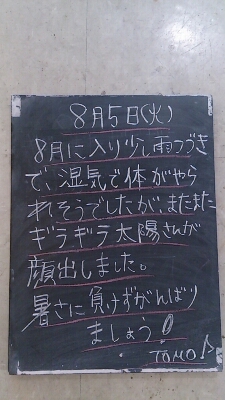 8月5日(火)
8月に入り少し雨つづき
で、湿気で体がやら
れそうでしたが、またまた
ギラギラ太陽さんが
顔出しました。
暑さに負けずがんばり
ましょう!
TOMO♪